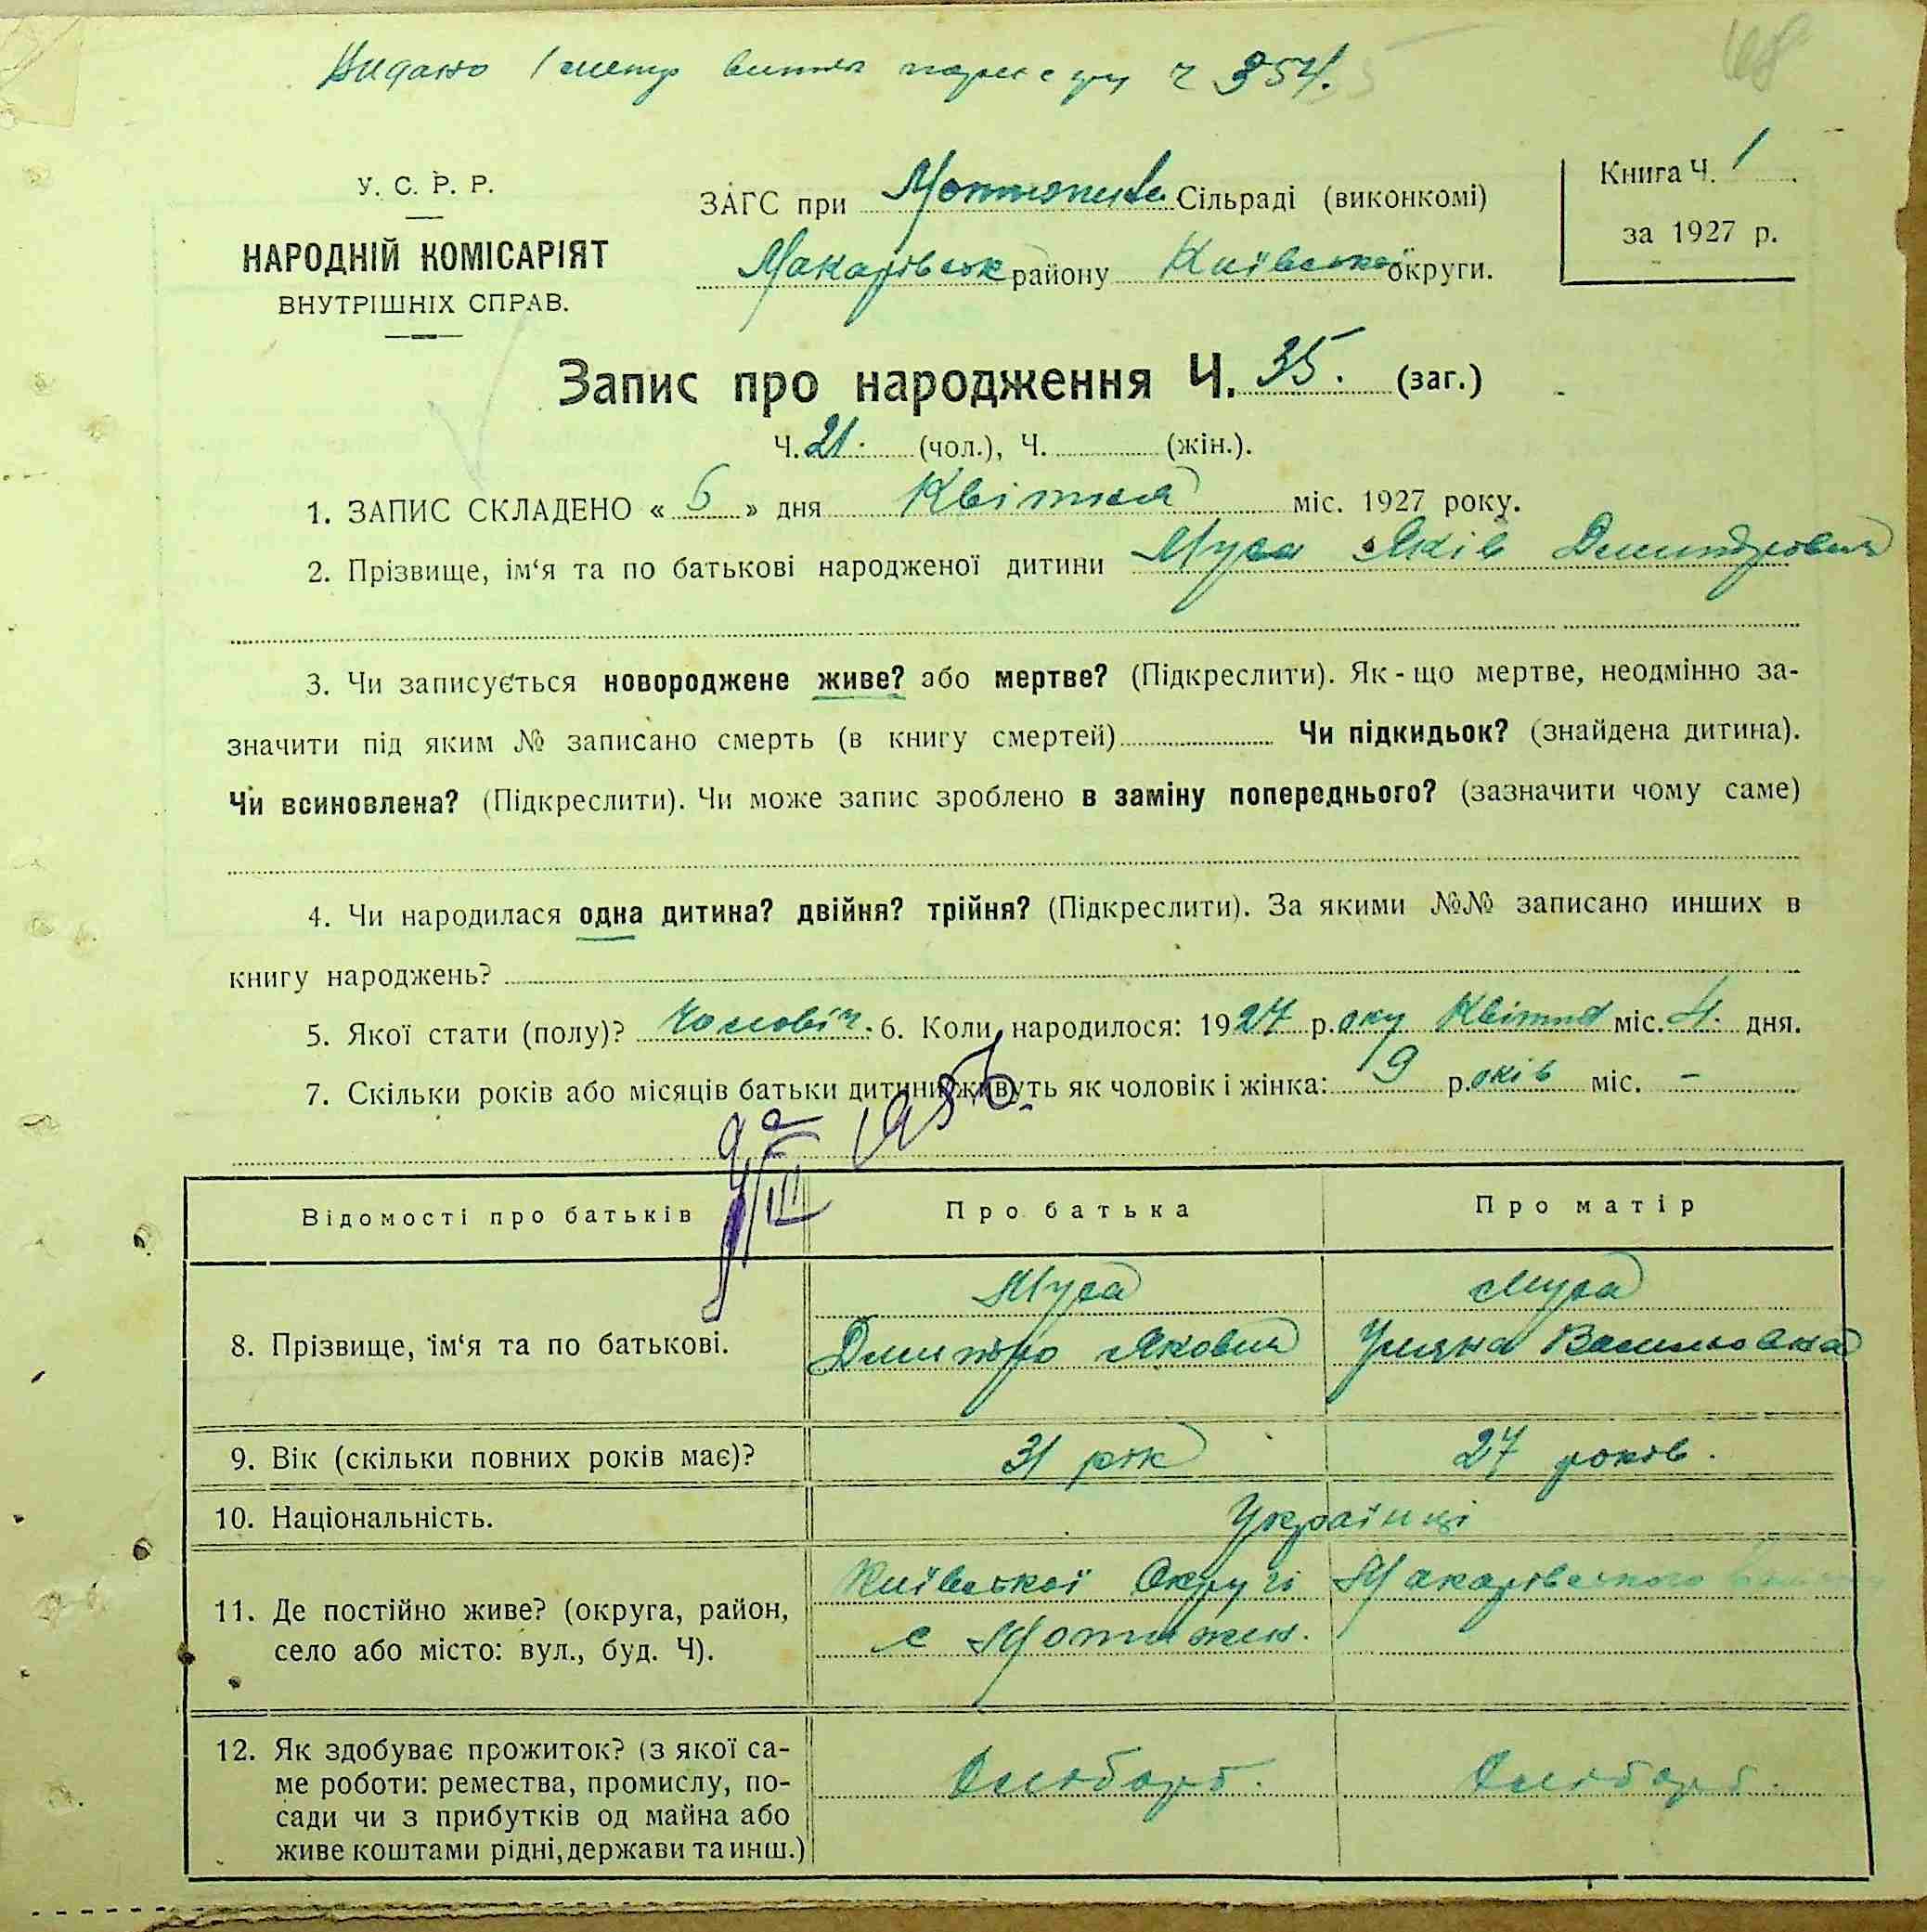 Видано
168
У. С. Р. Р.
НАРОДНІЙ КОМІСАРІЯТ
ВНУТРІШНІХ СПРАВ.
ЗАГС при Сільраді (виконкомі)
Макарівськ району Київської округи.
Книга Ч. 1
за 1927 р.
Запис про народження Ч. 35. (заг.)
Ч. 21. (чол.), Ч. (жін.).
1. ЗАПИС СКЛАДЕНО « 6 » дня Квітня міс. 1927 року.
2. Прізвище, ім‘я та по батькові народженої дитини Муса Яків Дмитрович
3. Чи записується новороджене живе? або мертве? (Підкреслити). Як - що мертве, неодмінно за-
значити під яким № записано смерть (в книгу смертей) Чи підкидьок? (знайдена дитина).
Чи всиновлена? (Підкреслити). Чи може запис зроблено в заміну попереднього? (зазначити чому саме)
4. Чи народилася одна дитина? двійня? трійня? (Підкреслити). За якими №№ записано инших в
книгу народжень?
5. Якої стати (полу)? Чоловіч. 6. Коли народилося: 1927 р.оку Квітня міс. 4. дня.
7. Скільки років або місяців батьки дитини живуть як чоловік і жінка: 9 р.оків міс. -
Відомості про батьків Про батька Про матір
8. Прізвище, їм‘я та по батькові. Муса Дмитро Якович Муса Уляна Васильовна
9. Вік (скільки повних років має)? 31 рік 27 років.
10. Національність. Українці
11. Де постійно живе? (округа, район, Київської Округі Макарівського
село або місто: вул., буд. Ч). с Мотижин.
12. Як здобуває прожиток? (з якої са-
ме роботи: ремества, промислу, по- Хлібороб. Хлібороб.
сади чи з прибутків од майна або
живе коштами рідні, держави та инш.)